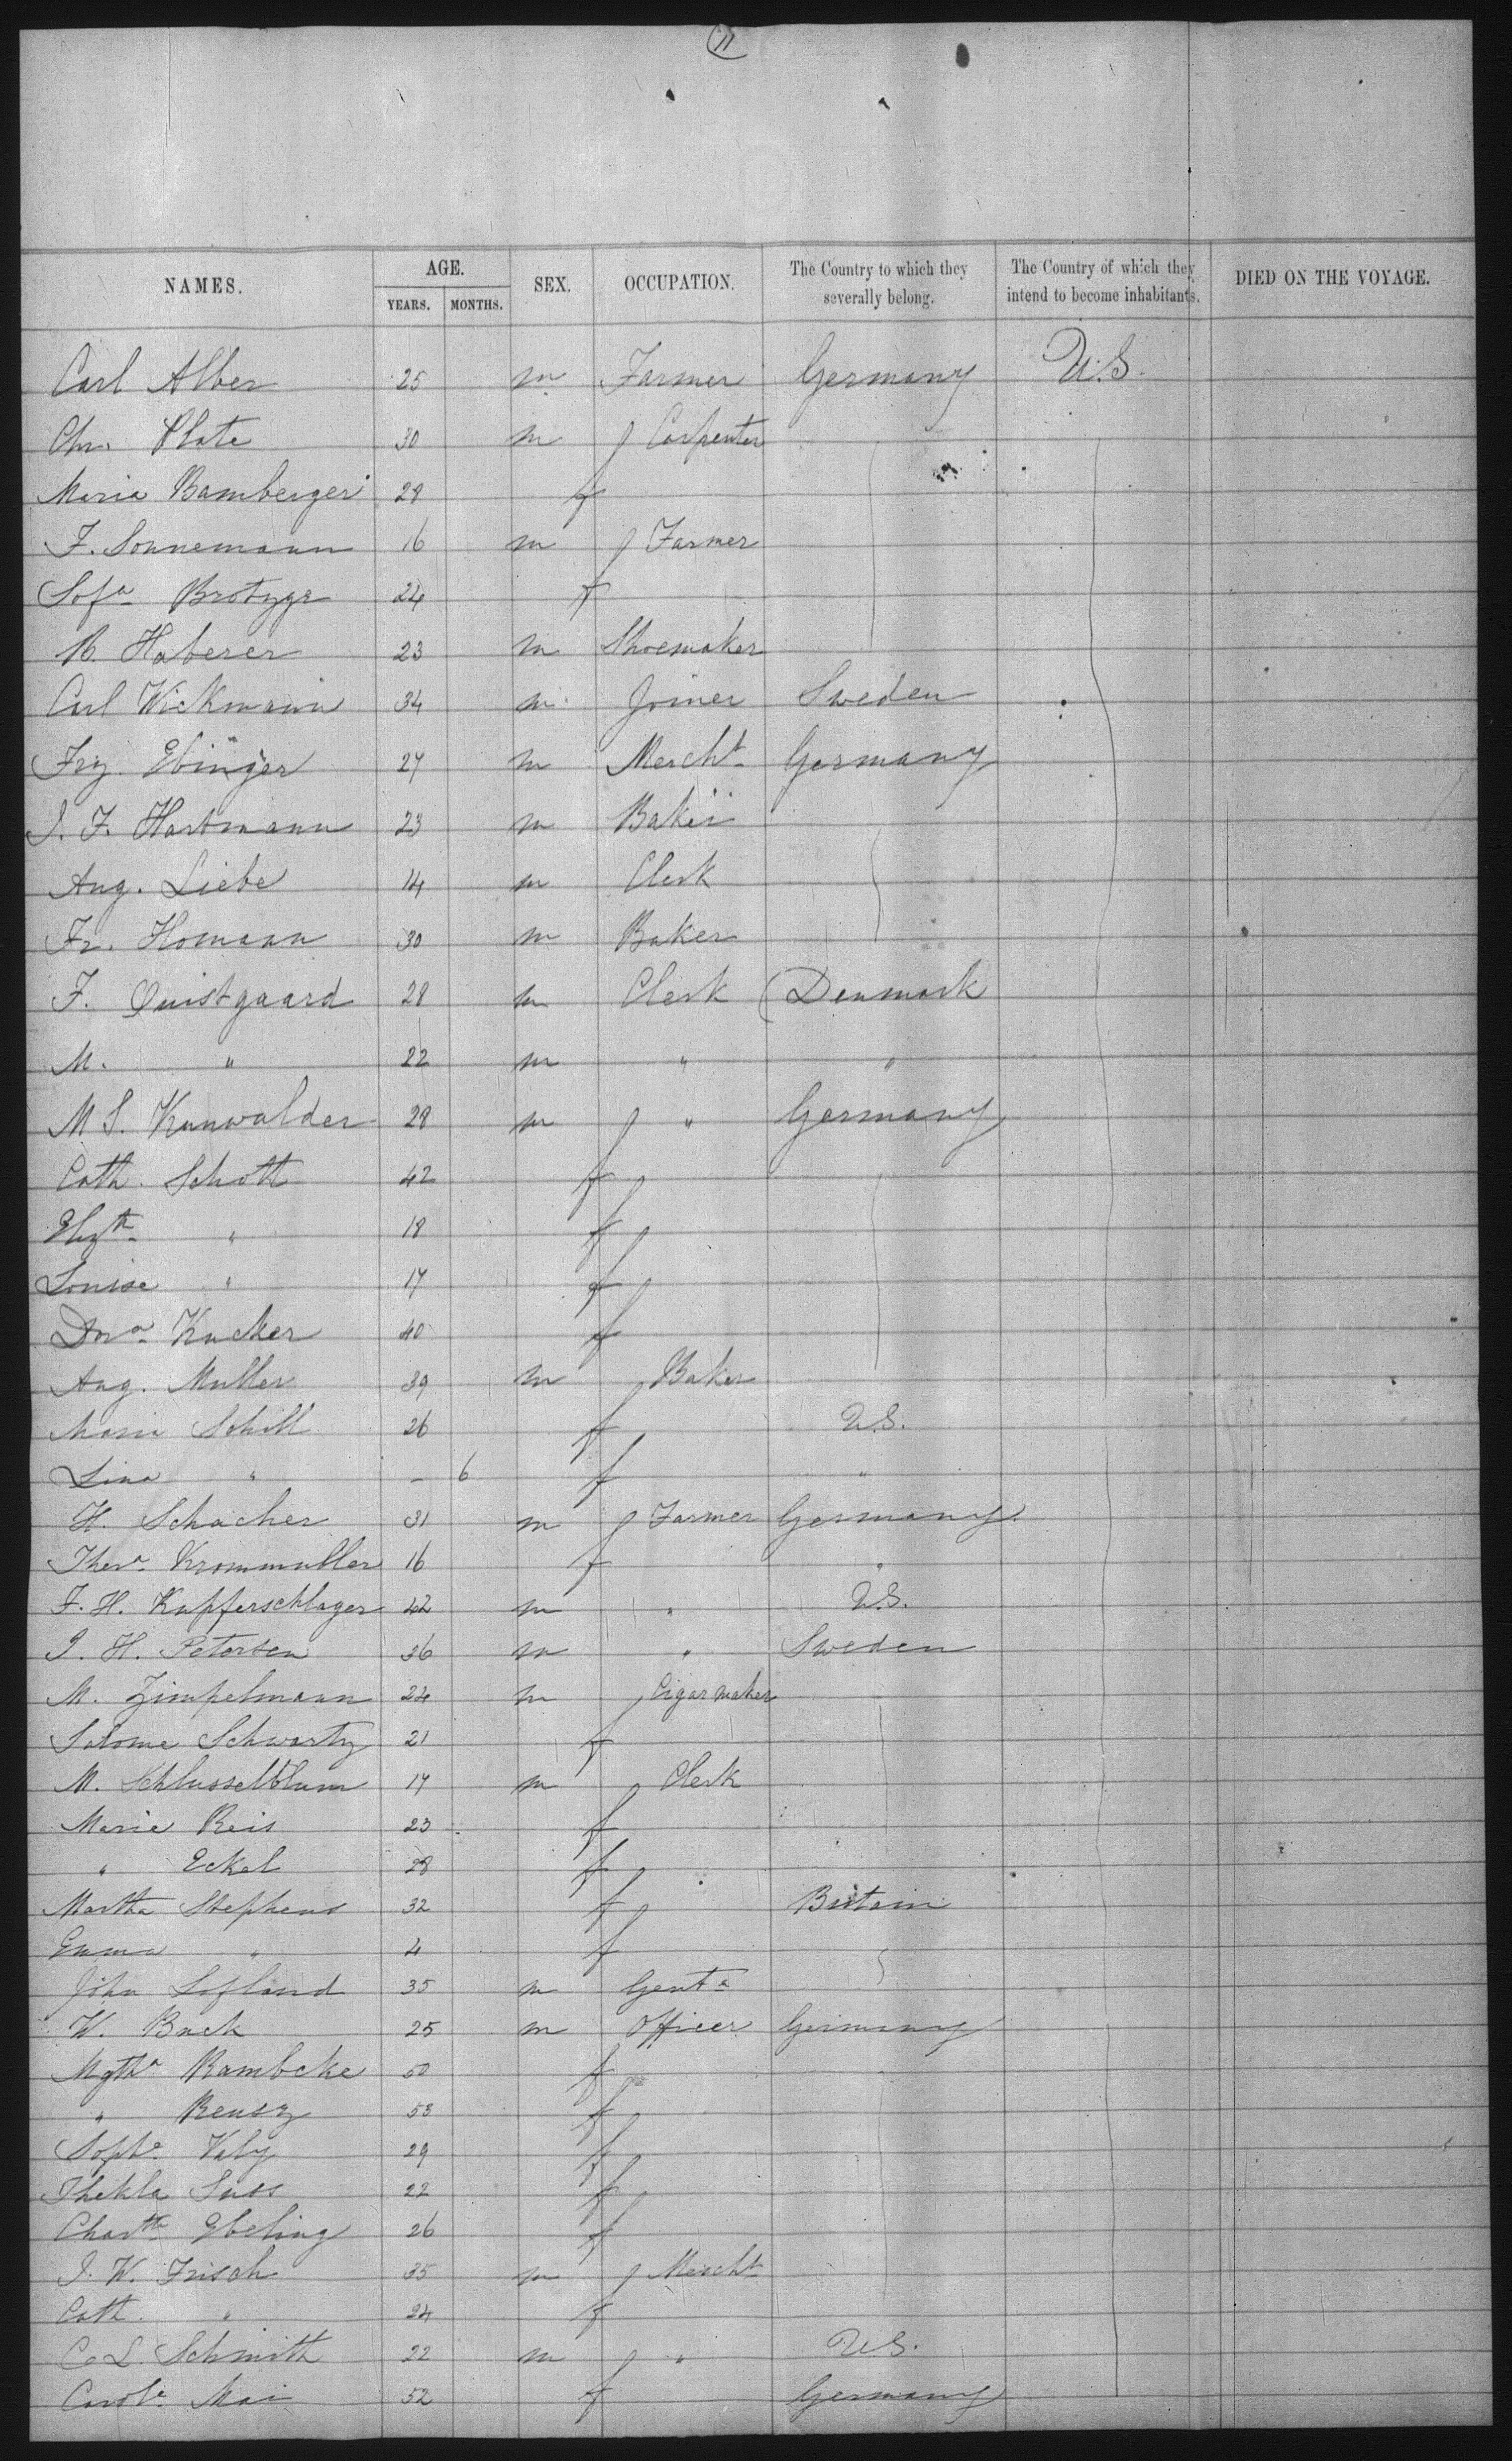 11
NAMES. AGE. SEX. OCCUPATION. The Country to which they severally belong. The Country of which they intend to become inhabitants. DIED ON THE VOYAGE.
YEARS. MONTHS.
Carl Alber 25 m Farmer Germany U.S.
Chr. Plate 30 m Carpenter
Maria Bamberger 28 f
F. Sonnemann 16 m Farmer
Sofa Brotzge 24 f
R. Haberer 23 m Shoemaker
Carl Wickmann 34 m Joiner Sweden
Frz. Ebinger 27 m Mercht Germany
J. F. Hartmann 23 m Baker
Aug. Liebe 14 m Clerk
Fr. Homann 30 m Baker
F. Quistgaard 28 m Clerk Denmark
M. " 22 m " "
M. S. Kunwalder 28 m " Germany
Cath. Schott 42 f
Elizth " 18 f
Louise " 17 f
Kucker 40 f
Aug. Muller 39 m Baker
Maria Schill 26 f U.S.
Lina " - 6 f "
H. Schacher 31 m Farmer Germany
Thera Krommuller 16 f "
F. H. Kupferschlager 42 m " U.S.
J. H. Petersen 36 m " Sweden
M. Zimpelmann 24 m Cigarmaker
Salome Schwartz 21 f
M. Schlusselblum 17 m Clerk
Marie Reis 23 f
" Eckel 28 f
Martha Stephens 32 f Britain
Emma " 4 f
John Lofland 35 m Gentn
W. Buck 25 m Officer Germany
Mgtha Rambcke 50 f
" Reusz 53 f
Sophe 29 f
Thekla Suss 22 f
Chartte Ebeling 26 f
J. W. Frisch 35 m Mercht
Cath. " 24 f
C. L. Schmith 22 m " U.S.
Carole Mai 52 f Germany